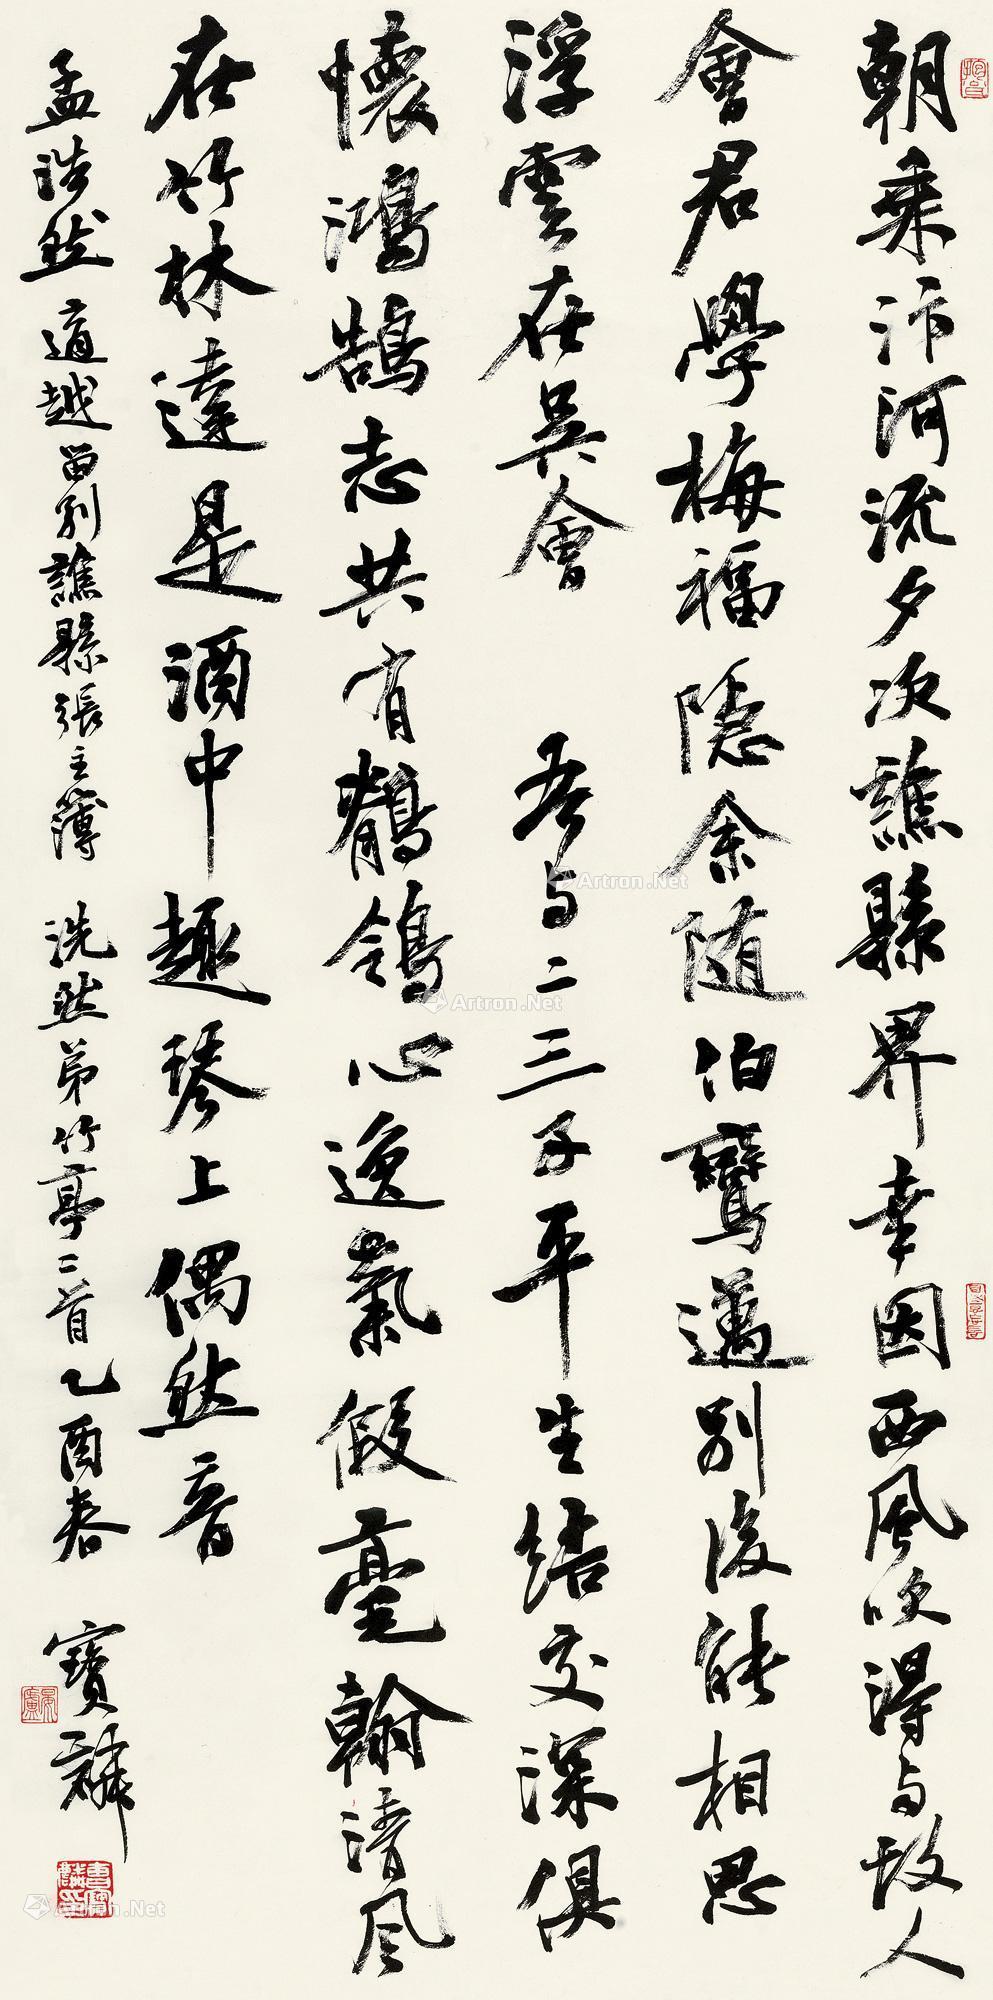 朝乘汴河流夕次譙縣界幸因西風吹得与故人
會君學梅福隱余随伯鸞邁别後能相思
浮雲在吴會 吾与二三子平生結交深俱
懷鴻鵠志共有鶺鴒心逸氣假毫翰清风
在竹林達是酒中趣琴上偶然音
孟浩然適越留别譙縣張主薄 洗然弟竹亭二首乙酉春 寶麟
Artron.Net
Artron.Net
Artron.Net